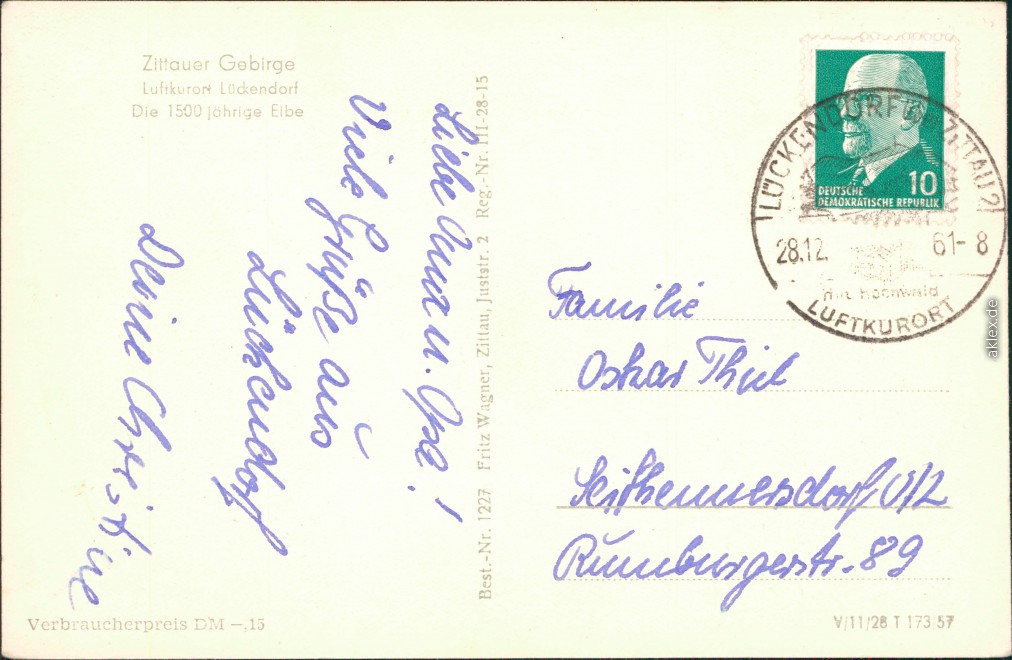 Zittauer Gebirge
Luftkurort Lückendorf
Die 1500 jährige Eibe
Liebe Oma u. Opa!
Viele Grüße aus
Lückendorf
Deine Christine
Verbraucherpreis DM –,15
Best.-Nr. 1227 Fritz Wagner, Zittau, Juststr. 2 Reg.-Nr. III-28-15
DEUTSCHE
DEMOKRATISCHE REPUBLIK
10
LÜCKENDORF ZITTAU 2
28.12. 61-8
mit Hochwald
LUFTKURORT
Familie
Oskar Thiel
Seifhennersdorf O/L
Rumburgerstr. 89
V/11/28 T 173/57
aklex.de